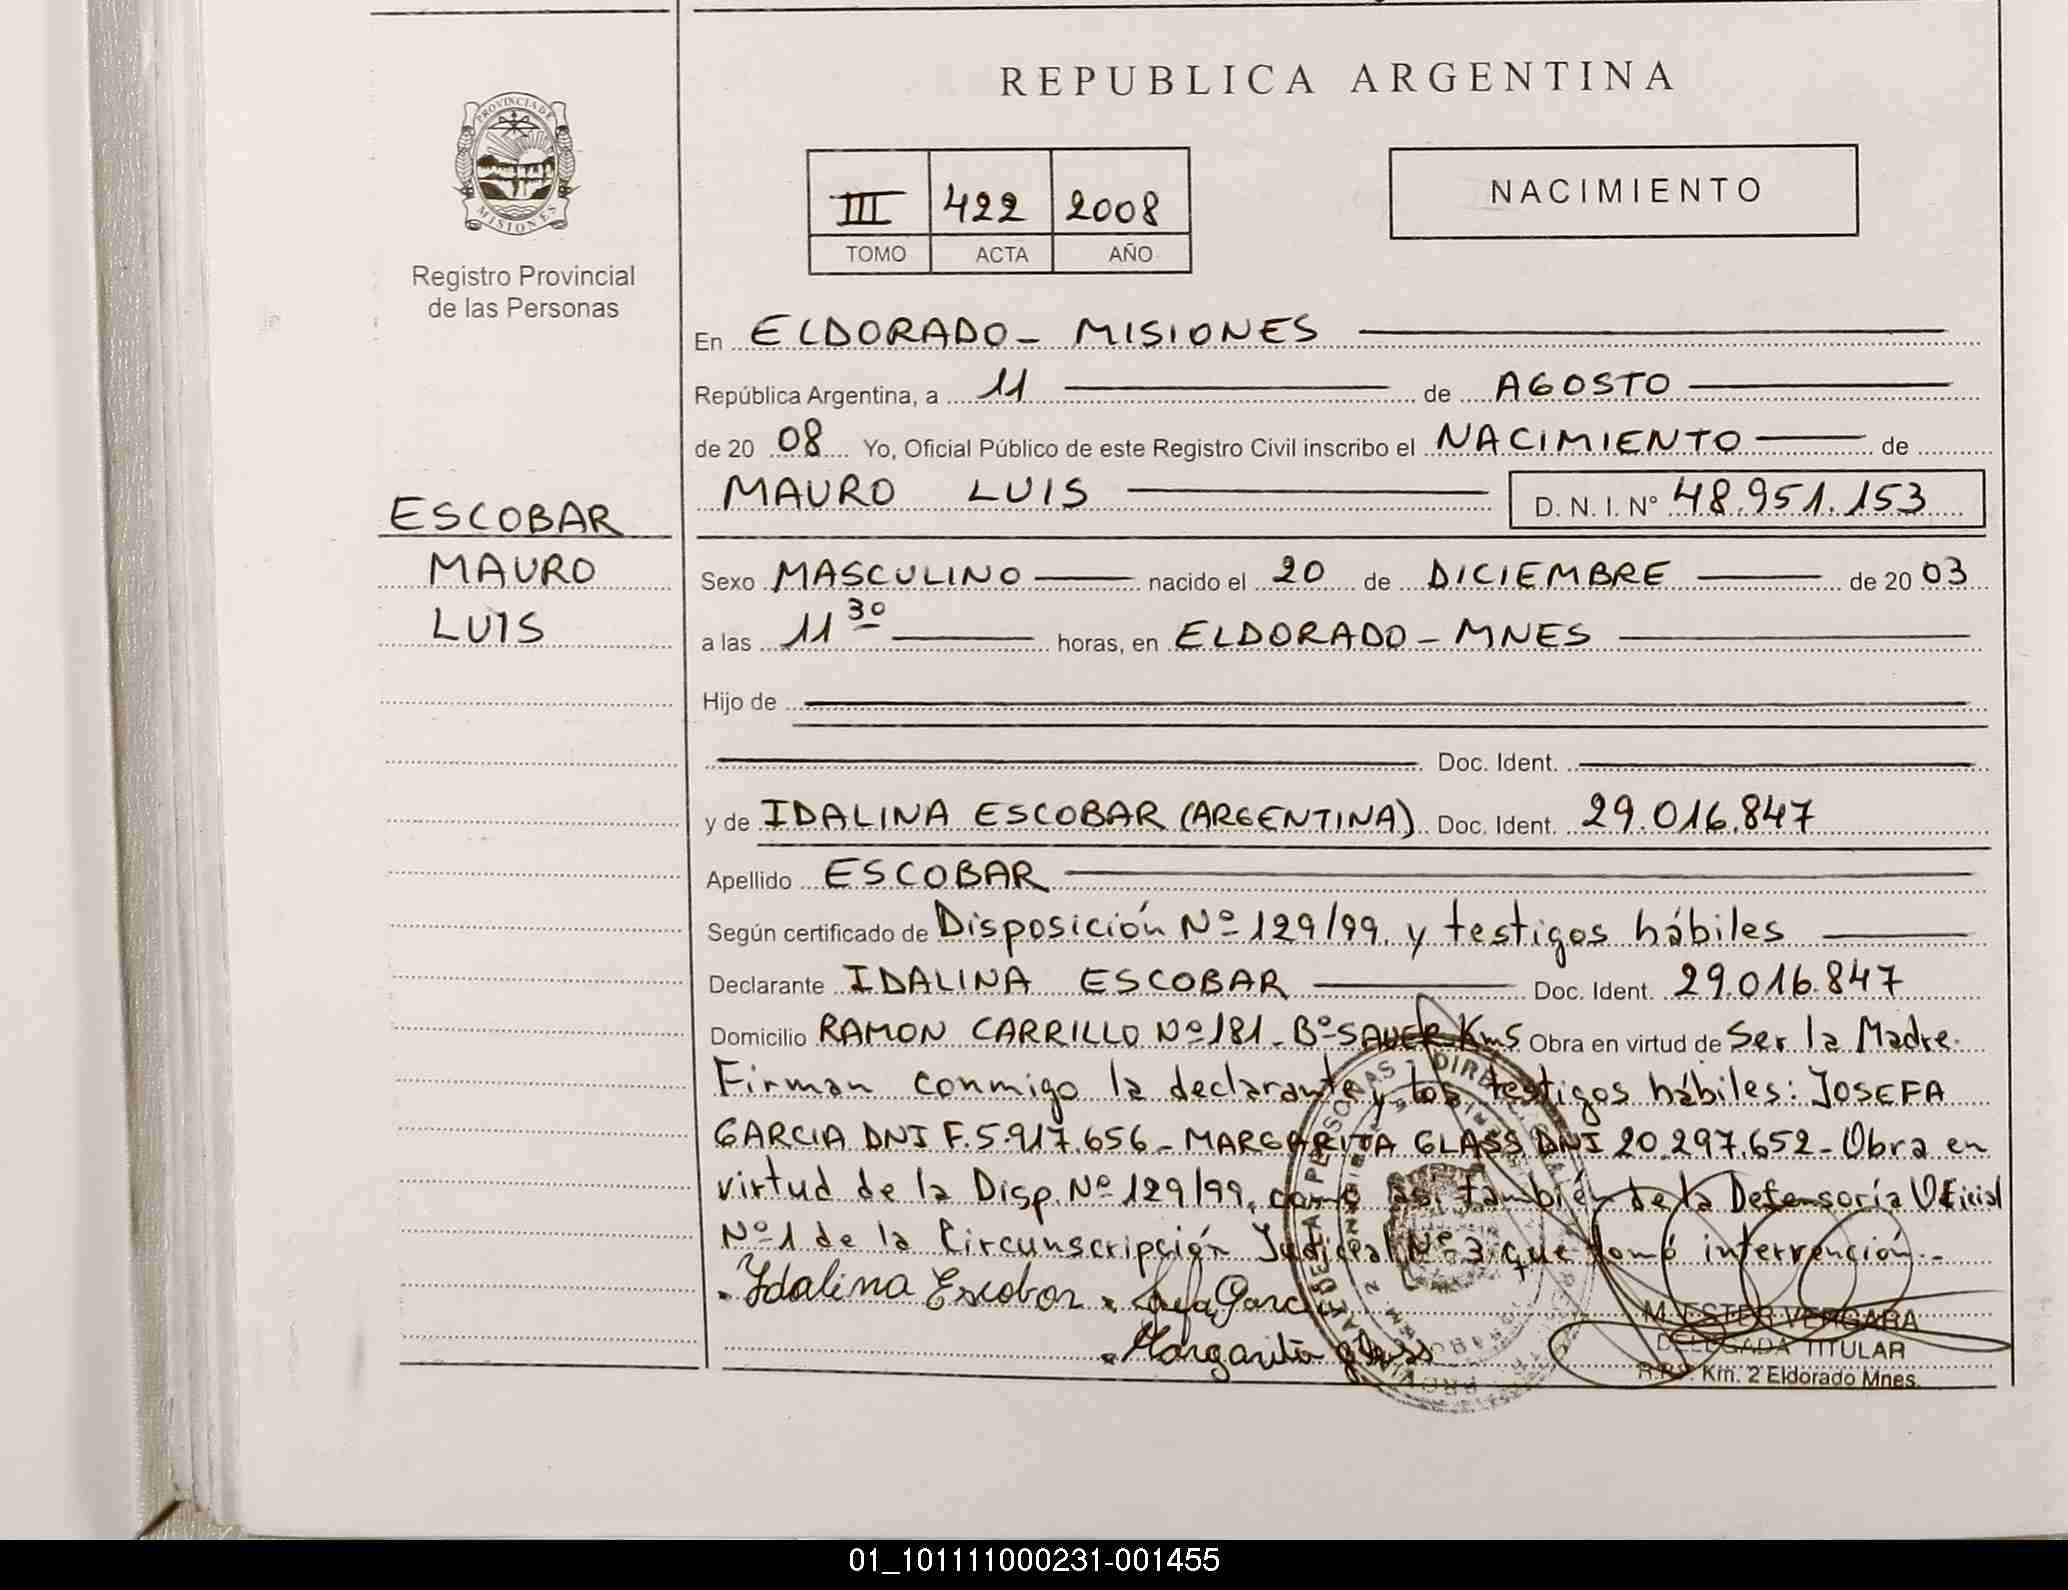 REPUBLICA ARGENTINA
PROVINCIA DE
MISIONES
Registro Provincial
de las Personas
III 422 2008
TOMO ACTA AÑO
NACIMIENTO
En ELDORADO - MISIONES
República Argentina, a 11 de AGOSTO
de 20 08 Yo, Oficial Público de este Registro Civil inscribo el NACIMIENTO de
MAURO LUIS D. N. I. N° 48.951.153
ESCOBAR
MAURO
LUIS
Sexo MASCULINO nacido el 20 de DICIEMBRE de 20 03
a las 11 30 horas, en ELDORADO - MNES
Hijo de
Doc. Ident.
y de IDALINA ESCOBAR (ARGENTINA) Doc. Ident. 29.016.847
Apellido ESCOBAR
Según certificado de Disposición Nº 129/99 y testigos hábiles
Declarante IDALINA ESCOBAR Doc. Ident. 29.016.847
Domicilio RAMON CARRILLO Nº 181 - Bº SAUER Km5 Obra en virtud de Ser la Madre.
Firman conmigo la declarante y los testigos hábiles: JOSEFA
GARCIA DNI F.5.917.656 - MARGARITA GLASS DNI 20.297.652 - Obra en
virtud de la Disp. Nº 129/99, como así también de la Defensoría Oficial
Nº 1 de la Circunscripción Judicial Nº 3 que tomó intervención.-
Idalina Escobar Garcia
Margarita glass
M. ESTER VERGARA
DELEGADA TITULAR
R.P.P. Km. 2 Eldorado Mnes.
01_101111000231-001455